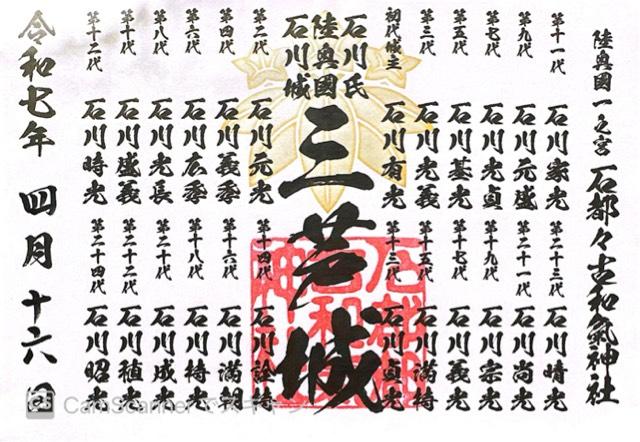 陸奥國一之宮 石都々古和氣神社
第十一代 石川家光 第二十三代 石川晴光
第九代 石川元盛 第二十一代 石川尚光
第七代 石川光貞 第十九代 石川宗光
第五代 石川基光 第十七代 石川義光
第三代 石川光義 第十五代 石川満持
初代城主 石川有光 第十三代 石川貞光
石川氏
陸奥國
石川城
三芦城
第二代 石川元光 第十四代 石川詮持
第四代 石川義季 第十六代 石川満朝
第六代 石川広季 第十八代 石川持光
第八代 石川光長 第二十代 石川成光
第十代 石川盛義 第二十二代 石川稙光
第十二代 石川時光 第二十四代 石川昭光
令和七年 四月十六日
CamScanner でスキャン